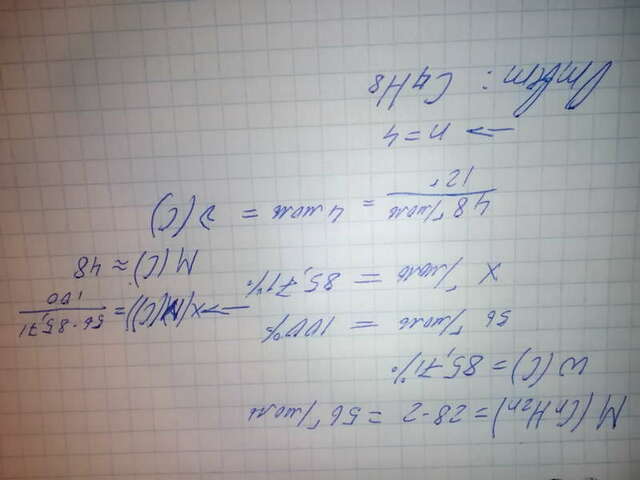 M(CnH2n) = 28·2 = 56 г/моль
ω(C) = 85,71%
56 г/моль = 100%
x г/моль = 85,71%
→ x(M(C)) = 56·85,71 / 100
M(C) ≈ 48
48 г/моль / 12 г = 4 моль = ν(C)
→ n = 4
Ответ: C4H8